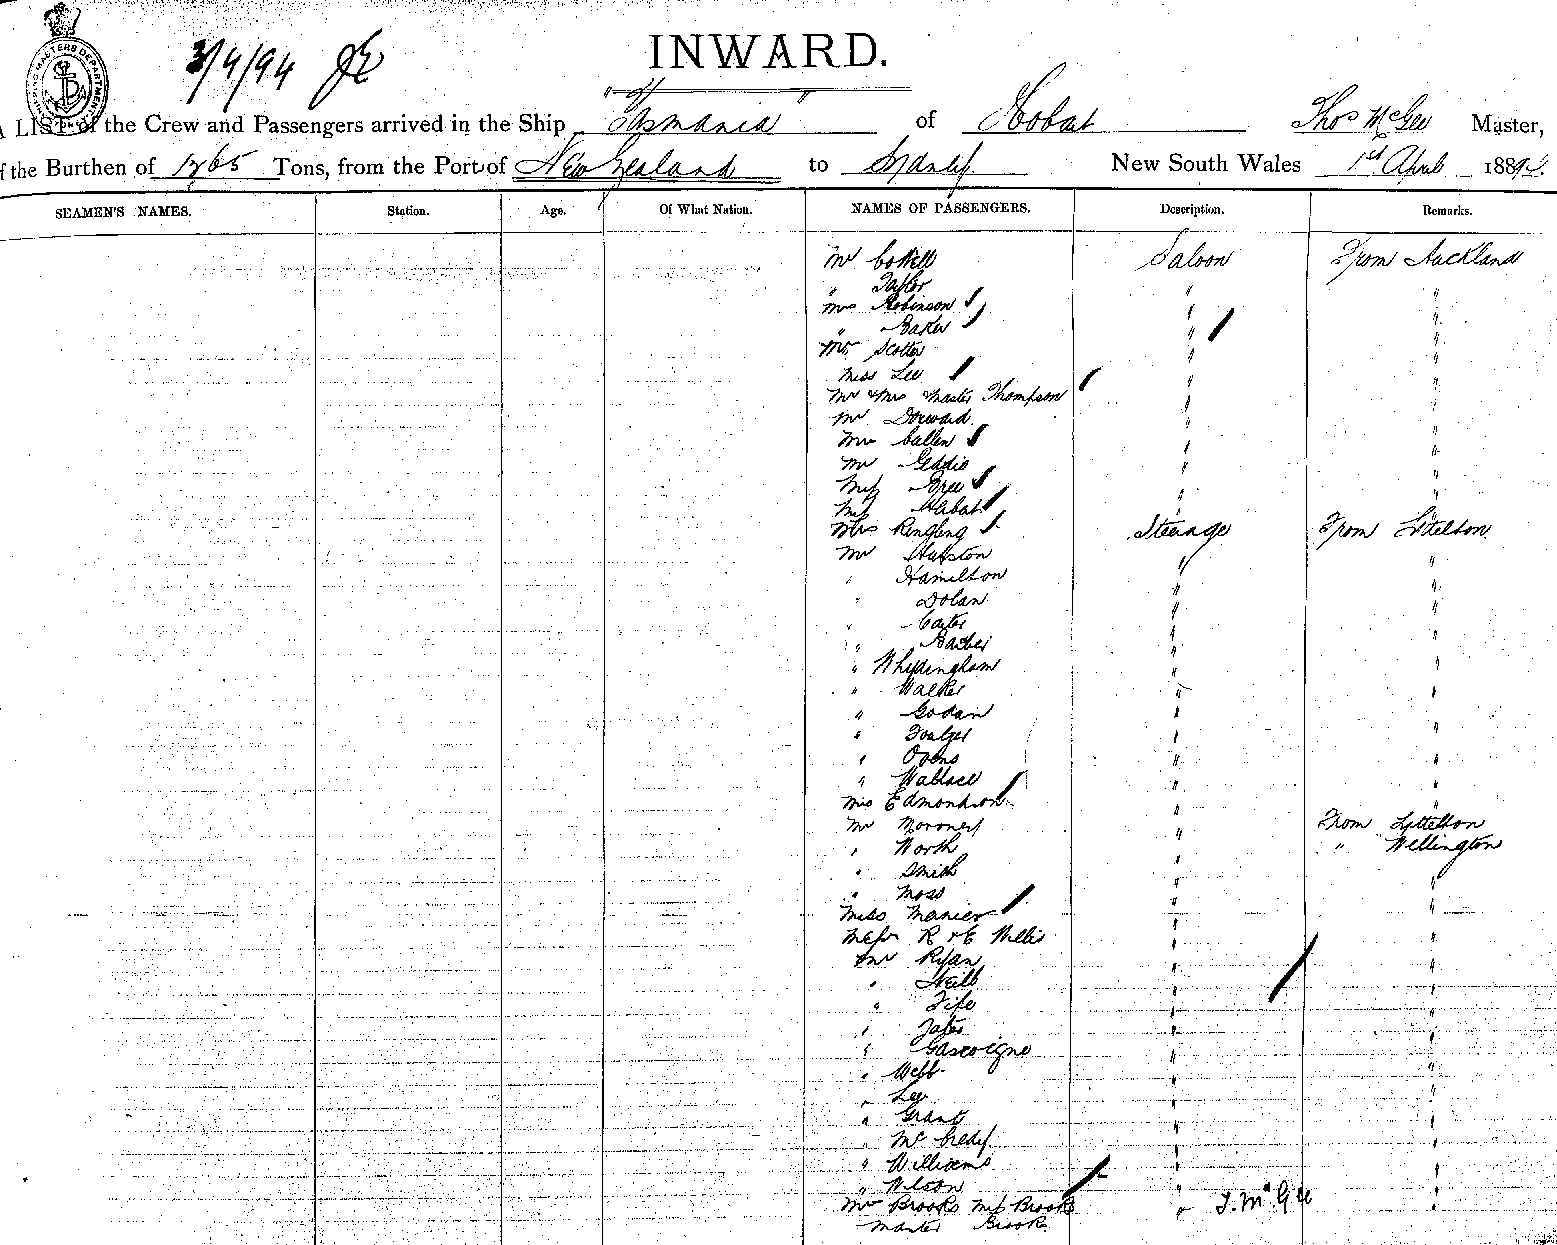 3/4/94
INWARD.
A LIST of the Crew and Passengers arrived in the Ship "Tasmania" of Hobart Thos McGee Master,
of the Burthen of Tons, from the Port of New Zealand to Sydney New South Wales 1st April
SEAMEN'S NAMES. Station. Age. Of What Nation. NAMES OF PASSENGERS. Description. Remarks.
Mr Cottell Saloon From Auckland
" Taylor " "
Mrs Robinson " "
" Baker " "
Mr Scotter " "
Miss Lee " "
Mr & Mrs Master Thompson " "
Mr Dorward " "
Mrs Callen " "
Mr Geddie " "
Miss " "
Miss " "
Mrs Steerage From Lyttelton
Mr " "
" Hamilton " "
" Dolan " "
" Carter " "
" Barber " "
" " "
" Walker " "
" Godan " "
" " "
" Ovens " "
" Wallace " "
Mrs Edmondson " "
Mr Moroney " From Lyttelton
" North " " Wellington
" Smith " "
" Moss " "
Miss Manier " "
Messrs R & E Willis " "
Mr Ryan " "
" Neill " "
" Fife " "
" " "
" Gascoigne " "
" Webb " "
" Lee " "
" Grant " "
" McCredy " "
" Williams " "
" Wilson " "
Mrs Brooks Miss Brooks " T. McGee
Master Brooks